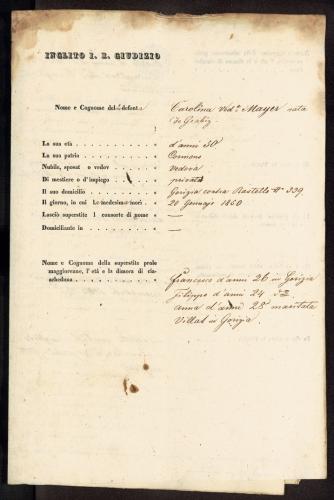 INCLITO I. R. GIUDIZIO
Nome e Cognome del defunto Carolina ved.ª Mayer nata
de Grabiz
La sua età d'anni 50
La sua patria Cormons
Nubile, sposat o vedov vedova
Di mestiere o d'impiego privata
Il suo domicilio Gorizia contra Rastello N° 339
Il giorno, in cui la medesima morì 20 Gennajo 1860
Lasciò superstite I consorte di nome —
Domiciliante in —
Nome e Cognome della superstite prole
maggiorenne, l'età e la dimora di cia-
scheduna
Francesco d'anni 26 in Gorizia
Filippo d'anni 24
Anna d'anni 28 maritata
Villat in Gorizia.